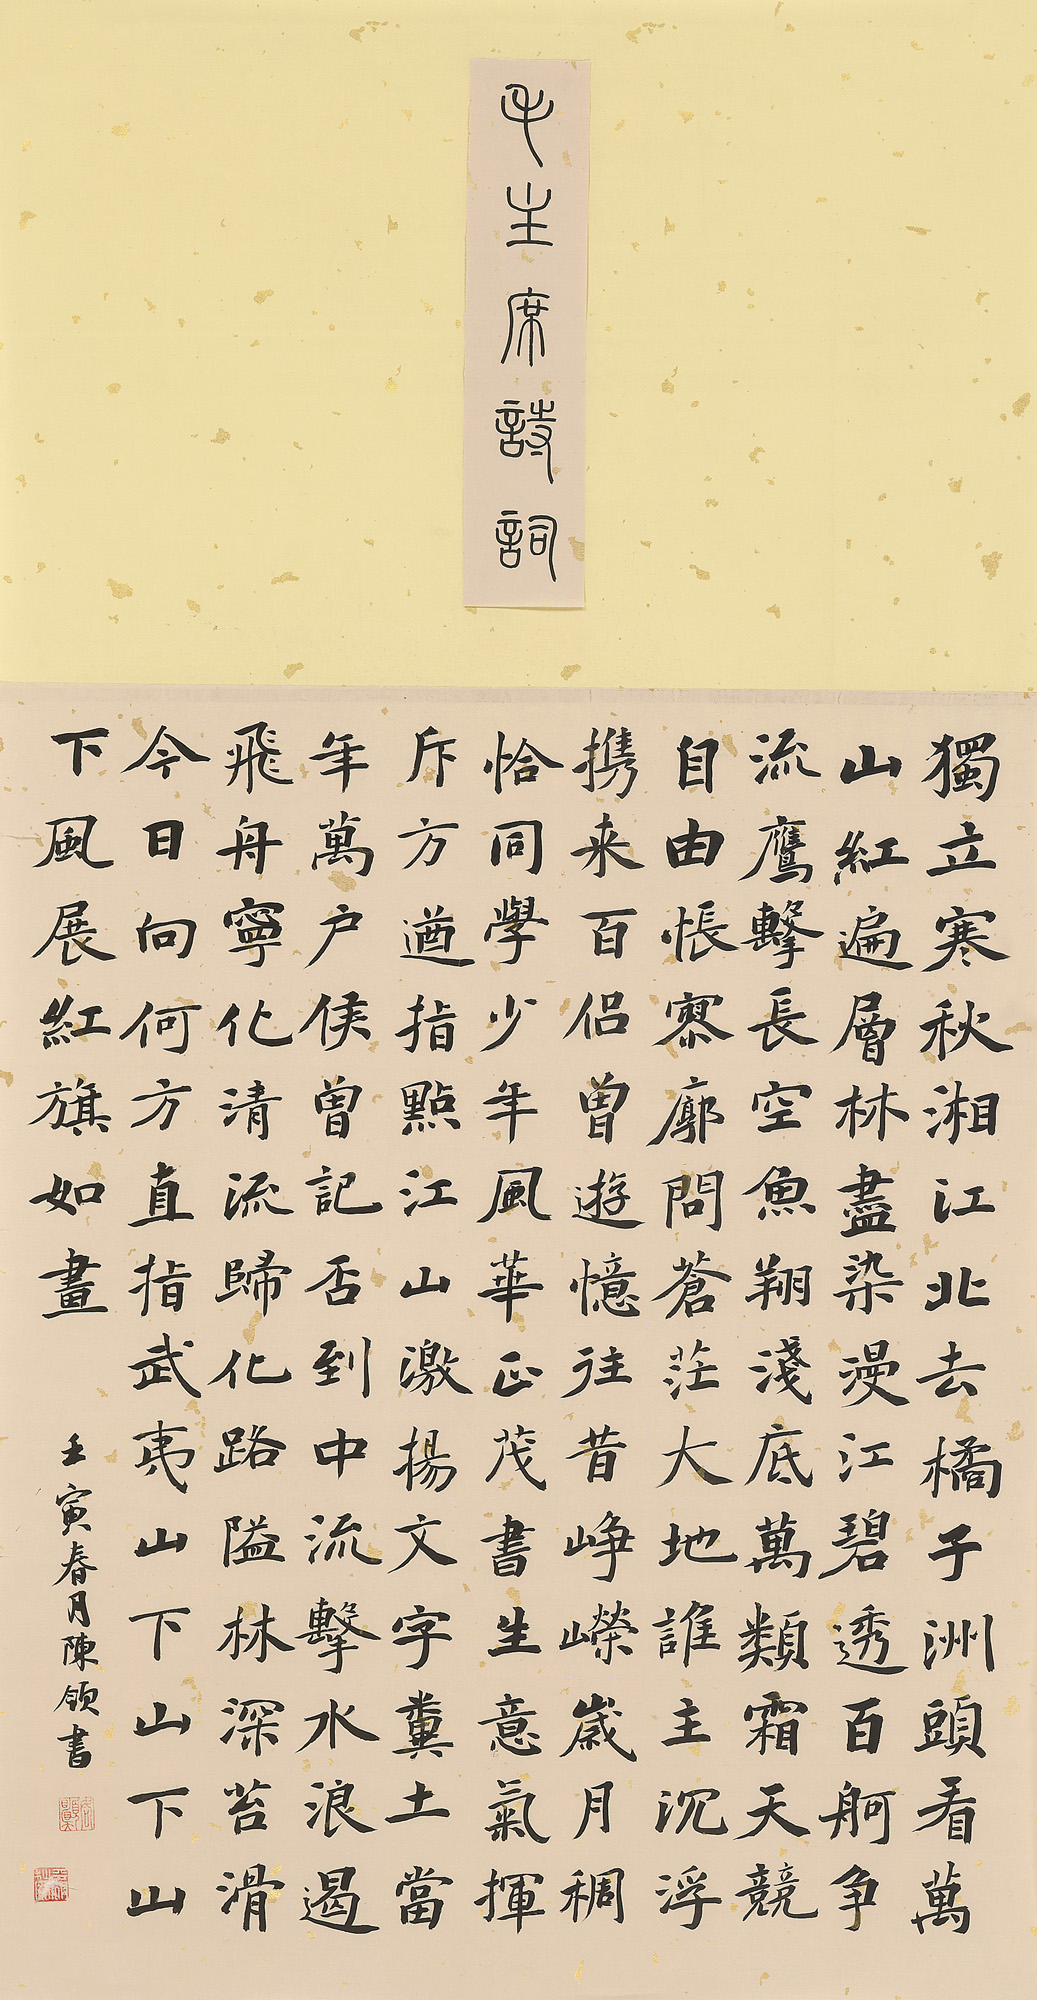 毛主席詩詞
獨立寒秋湘江北去橘子洲頭看萬
山紅遍層林盡染漫江碧透百舸争
流鷹擊長空魚翔淺底萬類霜天競
自由悵寥廓問蒼茫大地誰主沉浮
携来百侣曾遊憶往昔崢嶸崴月稠
恰同學少年風華正茂書生意氣揮
斥方遒指點江山激揚文字糞土當
年萬户侯曾記否到中流擊水浪遏
飛舟寧化清流歸化路隘林深苔滑
今日向何方直指武夷山下山下山
下風展紅旗如畫
壬寅春月陳領書